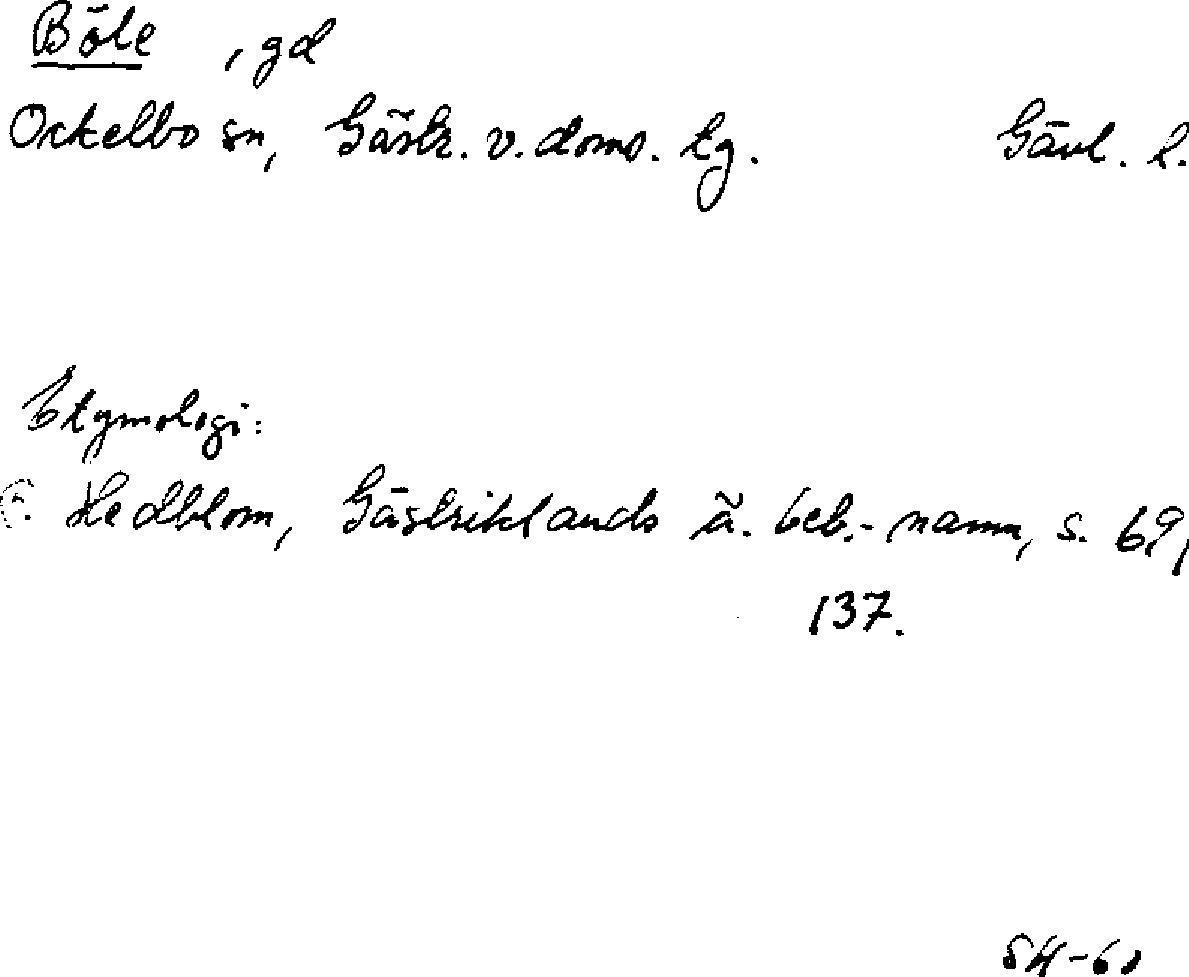 Böle , gd
Ockelbo sn, Gästr. v. doms. tg. Gävl. l.
Etymologi:
F. Hedblom, Gästriklands ä. beb.-namn, s. 69,
137.